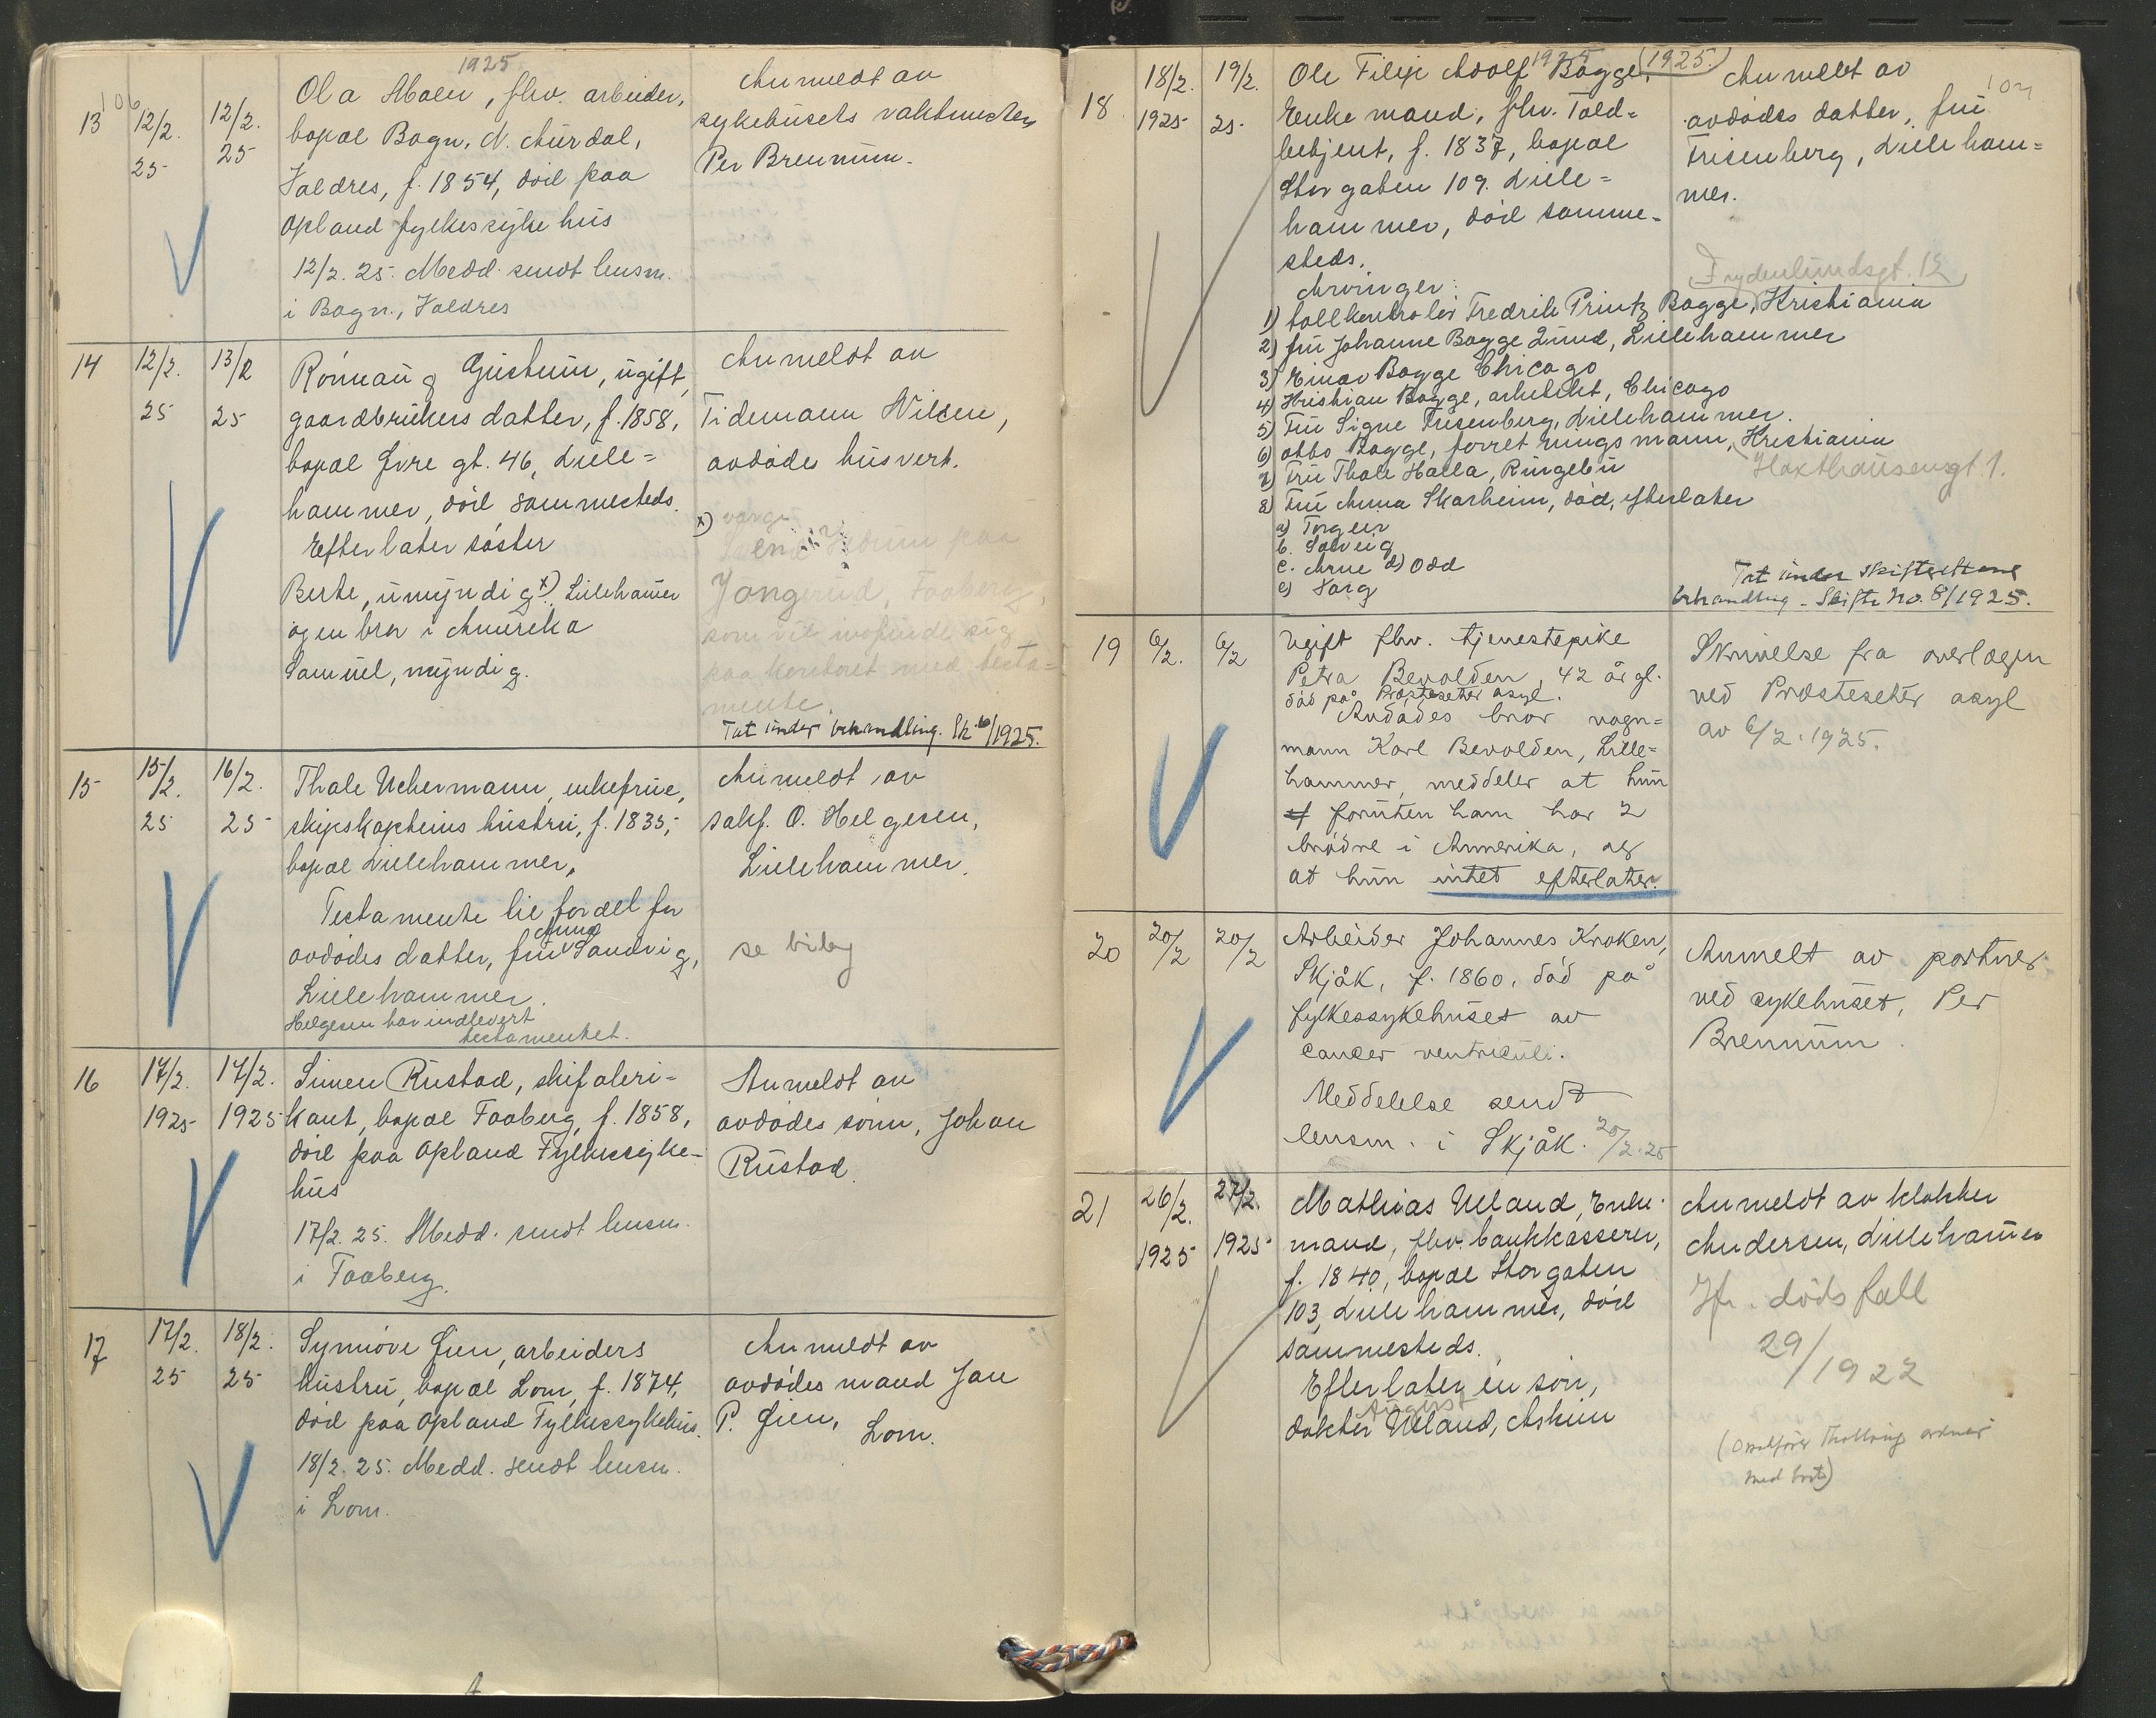 1925
106
13
12/2.
25
12/2.
25
Ola Moen, fhv. arbeider,
bopæl Bagn, N. Aurdal,
Valdres, f. 1854, död paa
Opland fylkessykehus
12/2. 25. Medd. sendt lensm.
i Bagn, Valdres
Anmeldt av
sykehusets vaktmester
Per Brennum.
14
12/2.
25
13/2
25
Rönnaug Gustum, ugift,
gaardbrukers datter, f. 1858,
bopæl Övre gt. 46, Lille=
hammer, död sammesteds.
Efterlater söster
Berte, umyndig x). Lillehamer
og en bror i Amerika
Samuel, myndig.
Anmeldt av
Tidemann Nilsen,
avdödes husvert.
x) verge
paa
Jongerud, Faaberg,
som vil innfinde sig
paa kontoret med testa=
mente.
Tat under behandling. Sk. 6/1925.
15
15/2.
25
16/2.
25
Thale Uchermann, enkefrue,
skipskapteins hustru, f. 1835,
bopæl Lillehammer,
Testamente til fordel for
avdödes datter, fru Anna Sandvig,
Lillehammer.
Helgesen har indlevert
testamentet.
Anmeldt av
sakf. O. Helgesen,
Lillehammer.
se bilag
16
17/2.
1925
17/2.
1925
Simen Rustad, skifabri=
kant, bopæl Faaberg, f. 1858,
död paa Opland Fylkessyke=
hus
17/2. 25. Medd. sendt lensm.
i Faaberg.
Anmeldt av
avdödes sönn, Johan
Rustad.
17
17/2.
25
18/2.
25
Synnöve Öien, arbeiders
hustru, bopæl Lom, f. 1874,
död paa Opland Fylkessykehus.
18/2. 25. Medd. sendt lensm.
i Lom.
Anmeldt av
avdödes mand Jan
P. Öien, Lom.
1925
1925.
107
18
18/2.
1925
19/2.
25
Ole Filip Adolf Bagge,
Enkemand, fhv. Told=
betjent, f. 1837, bopæl
Storgaten 109. Lille=
hammer, död samme=
steds.
Arvinger:
1) tollkontrolör Fredrik Printz Bagge, Kristiania
2) fru Johanne Bagge Lund, Lillehammer
3) Einar Bagge Chicago
4) Kristian Bagge, arkitekt, Chicago
5) Fru Signe Frisenberg, Lillehammer.
6) Otto Bagge, forretningsmann, Kristiania
7) Fru Thale Halla, Ringebu
8) Fru Anna Skarheim, död, efterlater
a) Torgeir
b. Solveig
c. Arne d) Odd
e)
Anmeldt av
avdödes datter, fru
Frisenberg, Lilleham=
mer.
Frydenlundsgt. 12
Haxthausensgt. 1.
Tat under skifterettens
behandling - Skifte No. 8/1925.
19
6/2.
6/2
Ugift fhv. tjenestepike
Petra Bevolden, 42 år gl.
död på Præsteseter asyl.
Avdödes bror vogn=
mann Karl Bevolden, Lille=
hammer, meddeler at hun
foruten ham har 2
brödre i Amerika, og
at hun intet efterlater.
Skrivelse fra overlægen
ved Præsteseter asyl
av 6/2. 1925.
20
20/2
20/2
Arbeider Johannes Kroken,
Skjåk, f. 1860, död på
fylkessykehuset av
cancer ventriculi.
Meddelelse sendt
lensm. i Skjåk. 20/2.25
Anmelt av portner
ved sykehuset, Per
Brennum.
21
26/2.
1925
27/2.
1925
Mathias Ueland, Enke=
mand, fhv. bankkasserer,
f. 1840, bopæl Storgaten
103, Lillehammer, död
sammesteds.
Efterlater en sön,
August
doktor Ueland, Askim
Anmeldt av klokker
Andersen, Lillehamer
Jfr. dödsfall
29/1922
med boet)